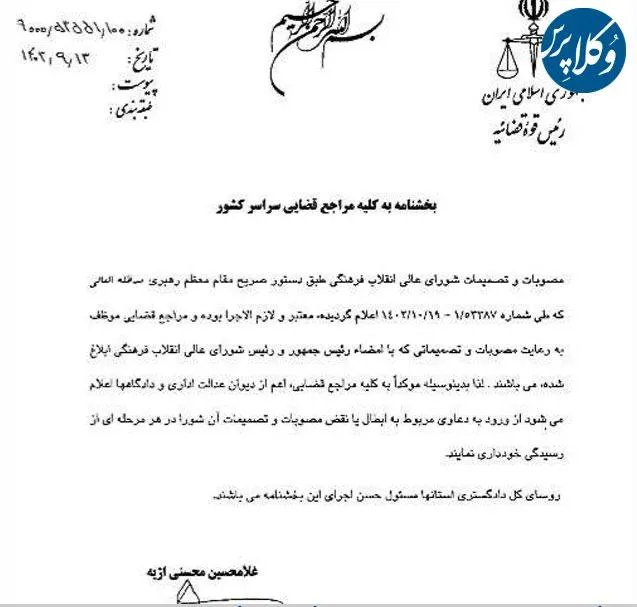 بسم الله الرحمن الرحیم
وکلاپرس
شماره: ۹۰۰۰/۵۲۵۵۱/۱۰۰
تاریخ: ۱۴۰۲/۹/۱۳
پیوست:
طبقه‌بندی:
جمهوری اسلامی ایران
رئیس قوهٔ قضائیه
بخشنامه به کلیه مراجع قضایی سراسر کشور
مصوبات و تصمیمات شورای عالی انقلاب فرهنگی طبق دستور صریح مقام معظم رهبری مدظله العالی
که طی شماره ۱/۵۳۳۸۷ - ۱۴۰۲/۱۰/۱۹ اعلام گردیده، معتبر و لازم الاجرا بوده و مراجع قضایی موظف
به رعایت مصوبات و تصمیماتی که با امضاء رئیس جمهور و رئیس شورای عالی انقلاب فرهنگی ابلاغ
شده، می باشند . لذا بدینوسیله موکداً به کلیه مراجع قضایی، اعم از دیوان عدالت اداری و دادگاهها اعلام
می شود از ورود به دعاوی مربوط به ابطال یا نقض مصوبات و تصمیمات آن شورا در هر مرحله ای از
رسیدگی خودداری نمایند.
روسای کل دادگستری استانها مسئول حسن اجرای این بخشنامه می باشند.
غلامحسین محسنی اژیه